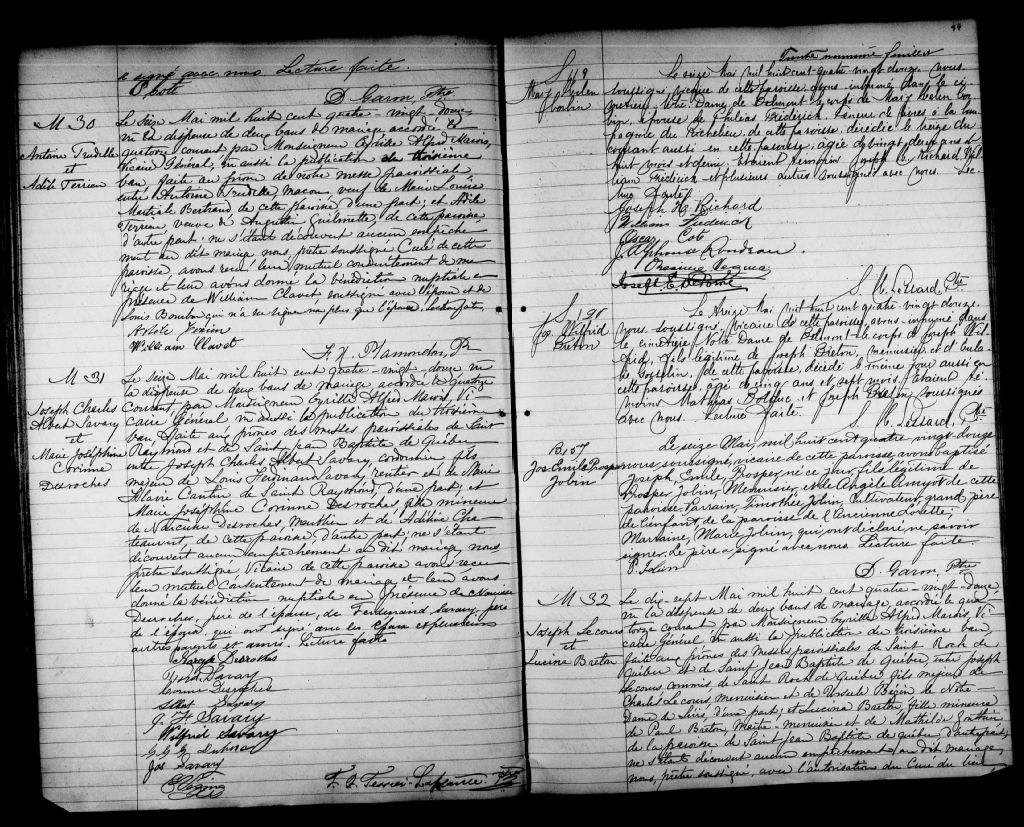 a signé avec nous. Lecture faite.
P. Cote
D. Garon, Ptre
M 30
Antoine Trudelle
et
Adile Terrien
Le seize Mai mil huit cent quatre-vingt-douze
vu la dispense de deux bans de mariage accordée le
quatorze courant par Monseigneur Cyrille Alfred Marois,
Vicaire Général, vu aussi la publication du troisième
ban, faite au prône de notre messe paroissiale
entre Antoine Trudelle maçon, veuf de Marie Louise
Martiale Bertrand, de cette paroisse d'une part; et Adile
Terrien, veuve d'Augustin Guilmette, de cette paroisse
d'autre part: ne s'étant découvert aucun empêche
ment au dit mariage nous, prêtre soussigné Curé de cette
paroisse, avons reçu leur mutuel consentement de ma
riage et leur avons donné la bénédiction nuptiale en
présence de William Clavet soussigné avec l'époux et de
Louis Bourbon qui n'a su signer non plus que l'épouse. Lecture faite.
William Clavet
F. H. Plamondon, Ptre
M 31
Joseph Charles
Albert Savary
et
Marie Joséphine
Corinne
Desroches
Le seize Mai mil huit cent quatre-vingt-douze vu
la dispense de deux bans de mariage accordée le quatorze
Courant, par Monseigneur Cyrille Alfred Marois, Vi-
caire Général vu aussi la publication du troisième
ban, faite aux prônes des messes paroissiales de Saint
Raymond et de Saint Jean Baptiste de Québec
entre Joseph Charles Albert Savary cordonnier fils
majeur de Louis Ferdinand Savary, rentier et de Marie
Cantin de Saint Raymond, d'une part, et
Marie Joséphine Corinne Desroches, fille mineure
de Narcisse Desroches, Meublier et de
de cette paroisse, d'autre part; ne s'étant
découvert aucun empêchement au dit mariage, nous
prêtre soussigné Vicaire de cette paroisse avons reçu
leur mutuel Consentement de mariage et leur avons
donné la bénédiction nuptiale en présence de Narcisse
Desroches, père de l'épouse, de Ferdinand Savary, père
de l'époux, qui ont signé avec les époux et plusieurs
autres parents et amis. Lecture faite
Desroches
Ferd. Savary
Corinne Desroches
Albert Savary
J. F. Savary
Wilfrid Savary
Jos Savary
39
Trente neuvième feuillet
S 119
Mary Helen
Le seize Mai mil huit cent quatre-vingt-douze nous
soussigné, vicaire de cette paroisse, avons inhumé dans le ci
metière Notre-Dame de Belmont le corps de Mary Helen
épouse de Philias Fréderick, teneur de livres à la com
pagnie du Richelieu, de cette paroisse, décédée le treize du
courant aussi en cette paroisse, âgée de vingt deux ans et
huit mois et demi. Etaient témoins Joseph H. Richard, Wil
liam Fréderick et plusieurs autres soussignés avec nous. Lec
ture faite.
Joseph H. Richard
William Frederick
Oscar Coté
J. Alphonse Rondeau
S. M. Lessard, Ptre
S 120
Jos. Wilfrid
Breton
Le seize Mai mil huit cent quatre-vingt-douze,
nous, soussigné, vicaire de cette paroisse, avons inhumé dans
le cimetière Notre Dame de Belmont le corps de Joseph Wil
frid, fils légitime de Joseph Breton, menuisier et d'Eula
lie Gosselin, de cette paroisse, décédé
cette paroisse, âgé de cinq ans et sept mois. Etaient té
moins Mathias et Joseph Breton soussignés
avec nous. Lecture faite.
S. M. Lessard, Ptre
B 157
Jos Emile Prosper
Jobin
Le seize Mai, mil huit cent quatre vingt-douze
nous soussigné, vicaire de cette paroisse, avons baptisé
Joseph, Emile, Prosper, né ce jour, fils légitime de
Prosper Jobin, Menuisier, et de Angèle Amyot de cette
paroisse. Parrain, Timothée Jobin, Cultivateur, grand père
de l'enfant, de la paroisse de l'Ancienne Lorette;
Marraine, Marie Jobin, qui ont déclaré ne savoir
signer. Le père a signé avec nous. Lecture faite.
P. Jobin
D. Garon, Ptre
M 32
Joseph Lecours
et
Lucina Breton
Le dix-sept Mai mil huit cent quatre-vingt-douze
vu la dispense de deux bans de mariage, accordée le qua
torze courant par Monseigneur Cyrille Alfred Marois, Vi
caire Général vu aussi la publication du troisième ban,
faite aux prônes des messes paroissiales de Saint Roch de
Québec et de Saint Jean Baptiste de Québec entre Joseph
Lecours commis, de Saint Roch de Québec fils mineur de
Charles Lecours, menuisier et de Ursule Bégin de Notre-
Dame de Lévis, d'une part; et Lucina Breton, fille mineure
de Paul Breton, Maître-menuisier et de Mathilde
de la paroisse de Saint-Jean Baptiste de Québec d'autre part;
ne s'étant découvert aucun empêchement au dit mariage,
nous, prêtre soussigné, avec l'autorisation du Curé du lieu